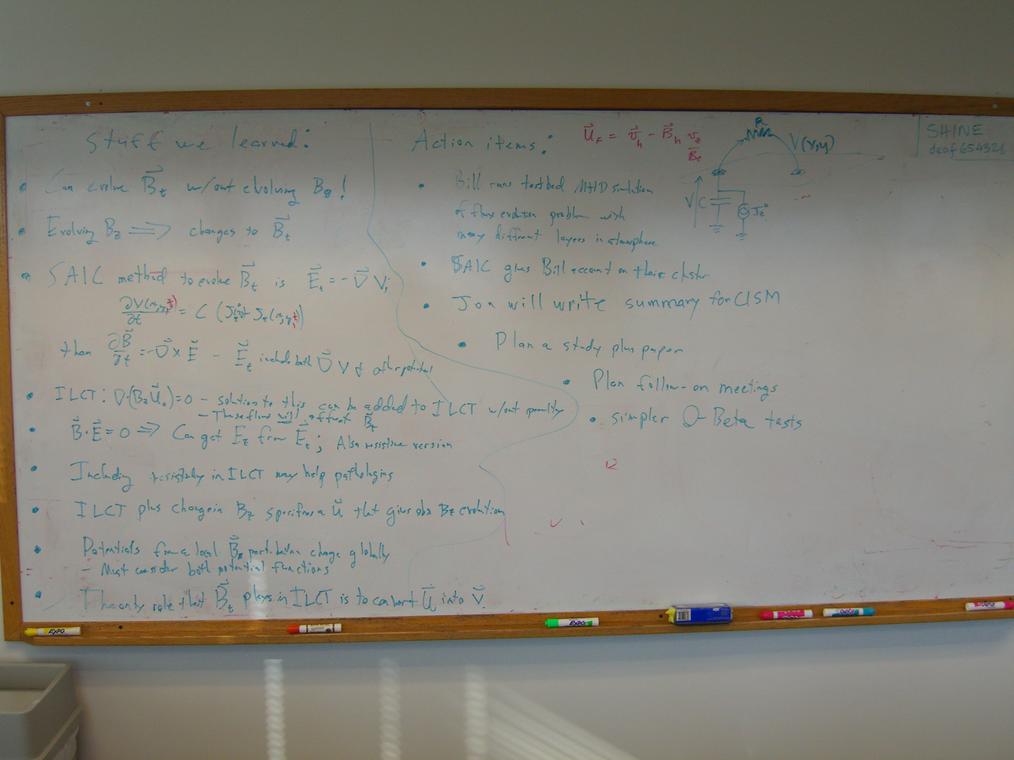 Stuff we learned:
• Can evolve B⃗t w/out evolving Bz!
• Evolving Bz ⟹ changes to B⃗t
• SAIC method to evolve B⃗t is E⃗t = -∇⃗ V;
∂V(x,y,t)/∂t = C
then ∂B⃗/∂t = -∇⃗ x E⃗ - E⃗t include both ∇⃗V & other potential
• ILCT: ∇·(Bz U⃗.)=0 - solution to this can be added to ILCT w/out penalty
- These flows will affect B⃗t
• B⃗·E⃗=0 ⟹ Can get Ez from E⃗t; Also resistive version
• Including resistivity in ILCT may help pathologies
• ILCT plus change in Bz specifies a u⃗ that gives obs Bz evolution
• Potentials from a local perturbation change globally
- Must consider both potential functions
• The only role that B⃗t plays in ILCT is to convert U⃗ into V⃗.
Action items:
• Bill runs testbed MHD simulation
of flux evolution problem with
many different layers in atmosphere
• SAIC gives Bill account on their cluster
• Jon will write summary for CISM
• Plan a study plus paper
• Plan follow-on meetings
• simpler O-Beta tests
U⃗f = v⃗h - B⃗h vz/Bz
R
V(x,y)
V
C
SHINE